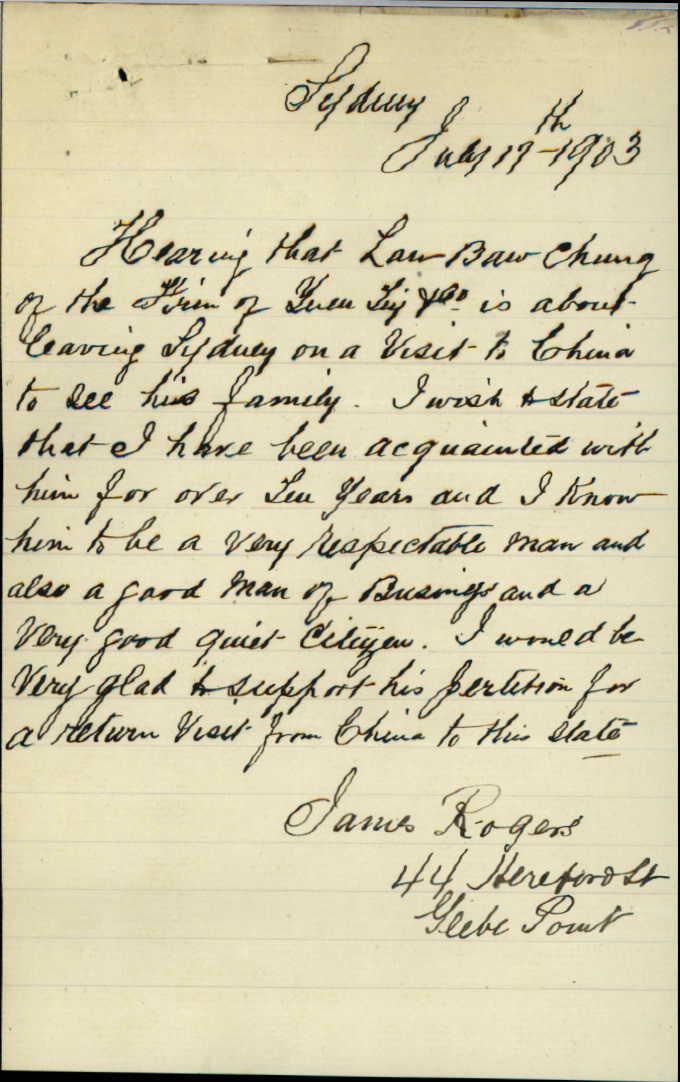 Sydney
July 17th 1903
Hearing that Law Baw Chung
of the Firm of Yuen Tiy & Co is about
leaving Sydney on a Visit to China
to see his family. I wish to state
that I have been acquainted with
him for over Ten Years and I Know
him to be a very respectable man and
also a good man of Business and a
Very good quiet Citizen. I would be
Very glad to support his pertition for
a return Visit from China to this state
James Rogers
44 Hereford St
Glebe Point